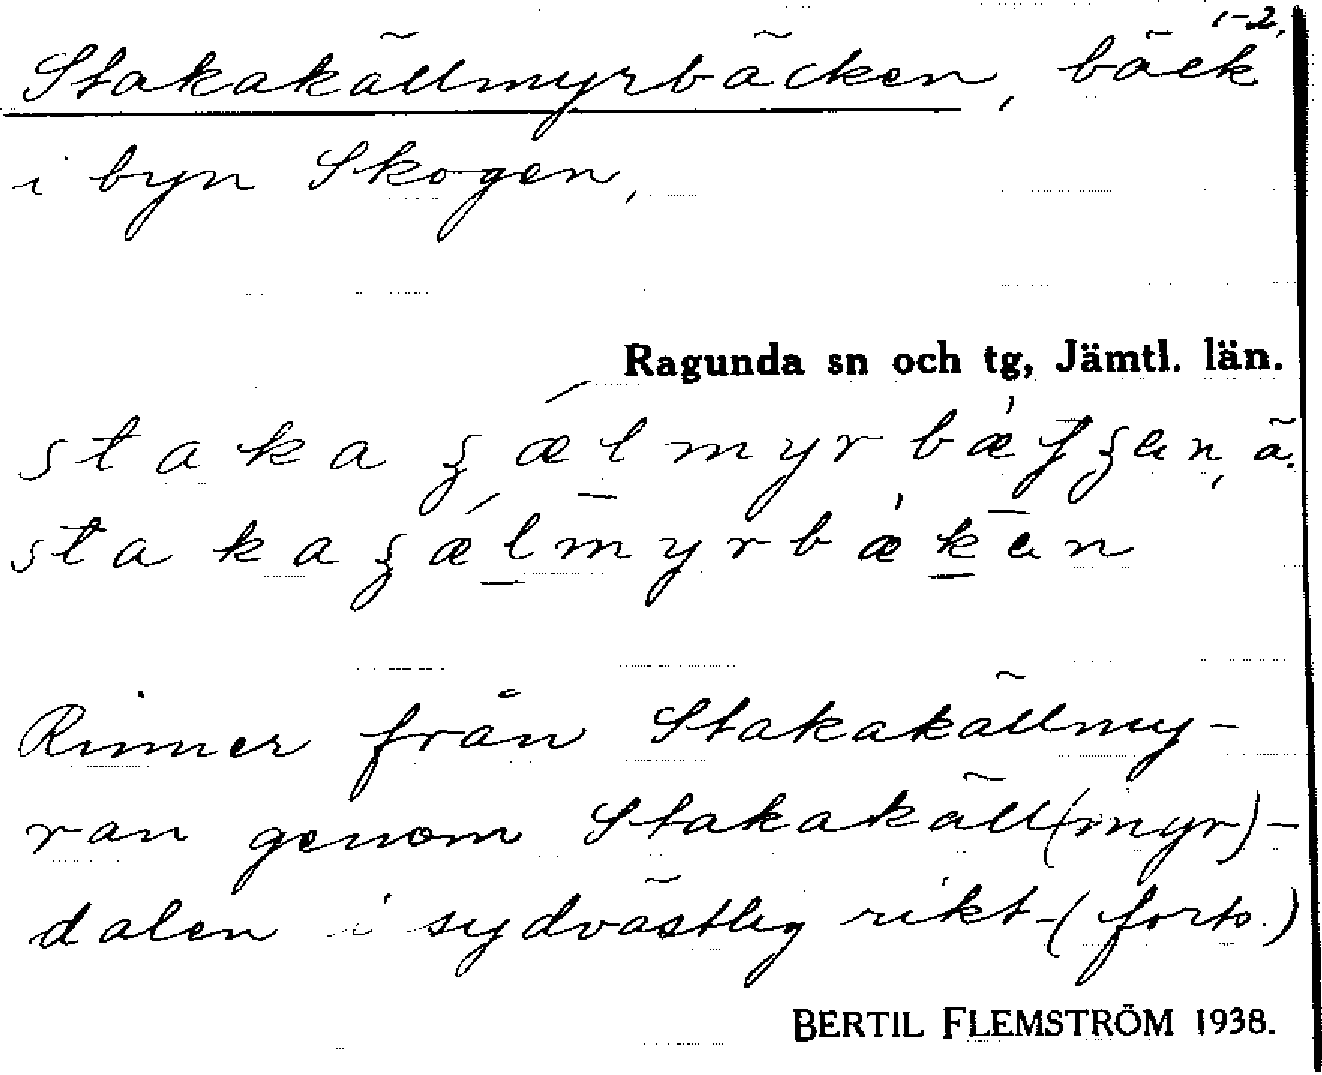 1-2.
Stakakällmyrbäcken, bäck
i byn Skogen,
Ragunda sn och tg, Jämtl. län.
Rinner från Stakakällmy-
ran genom Stakakäll(myr)-
dalen i sydvästlig rikt-(forts.)
BERTIL FLEMSTRÖM 1938.